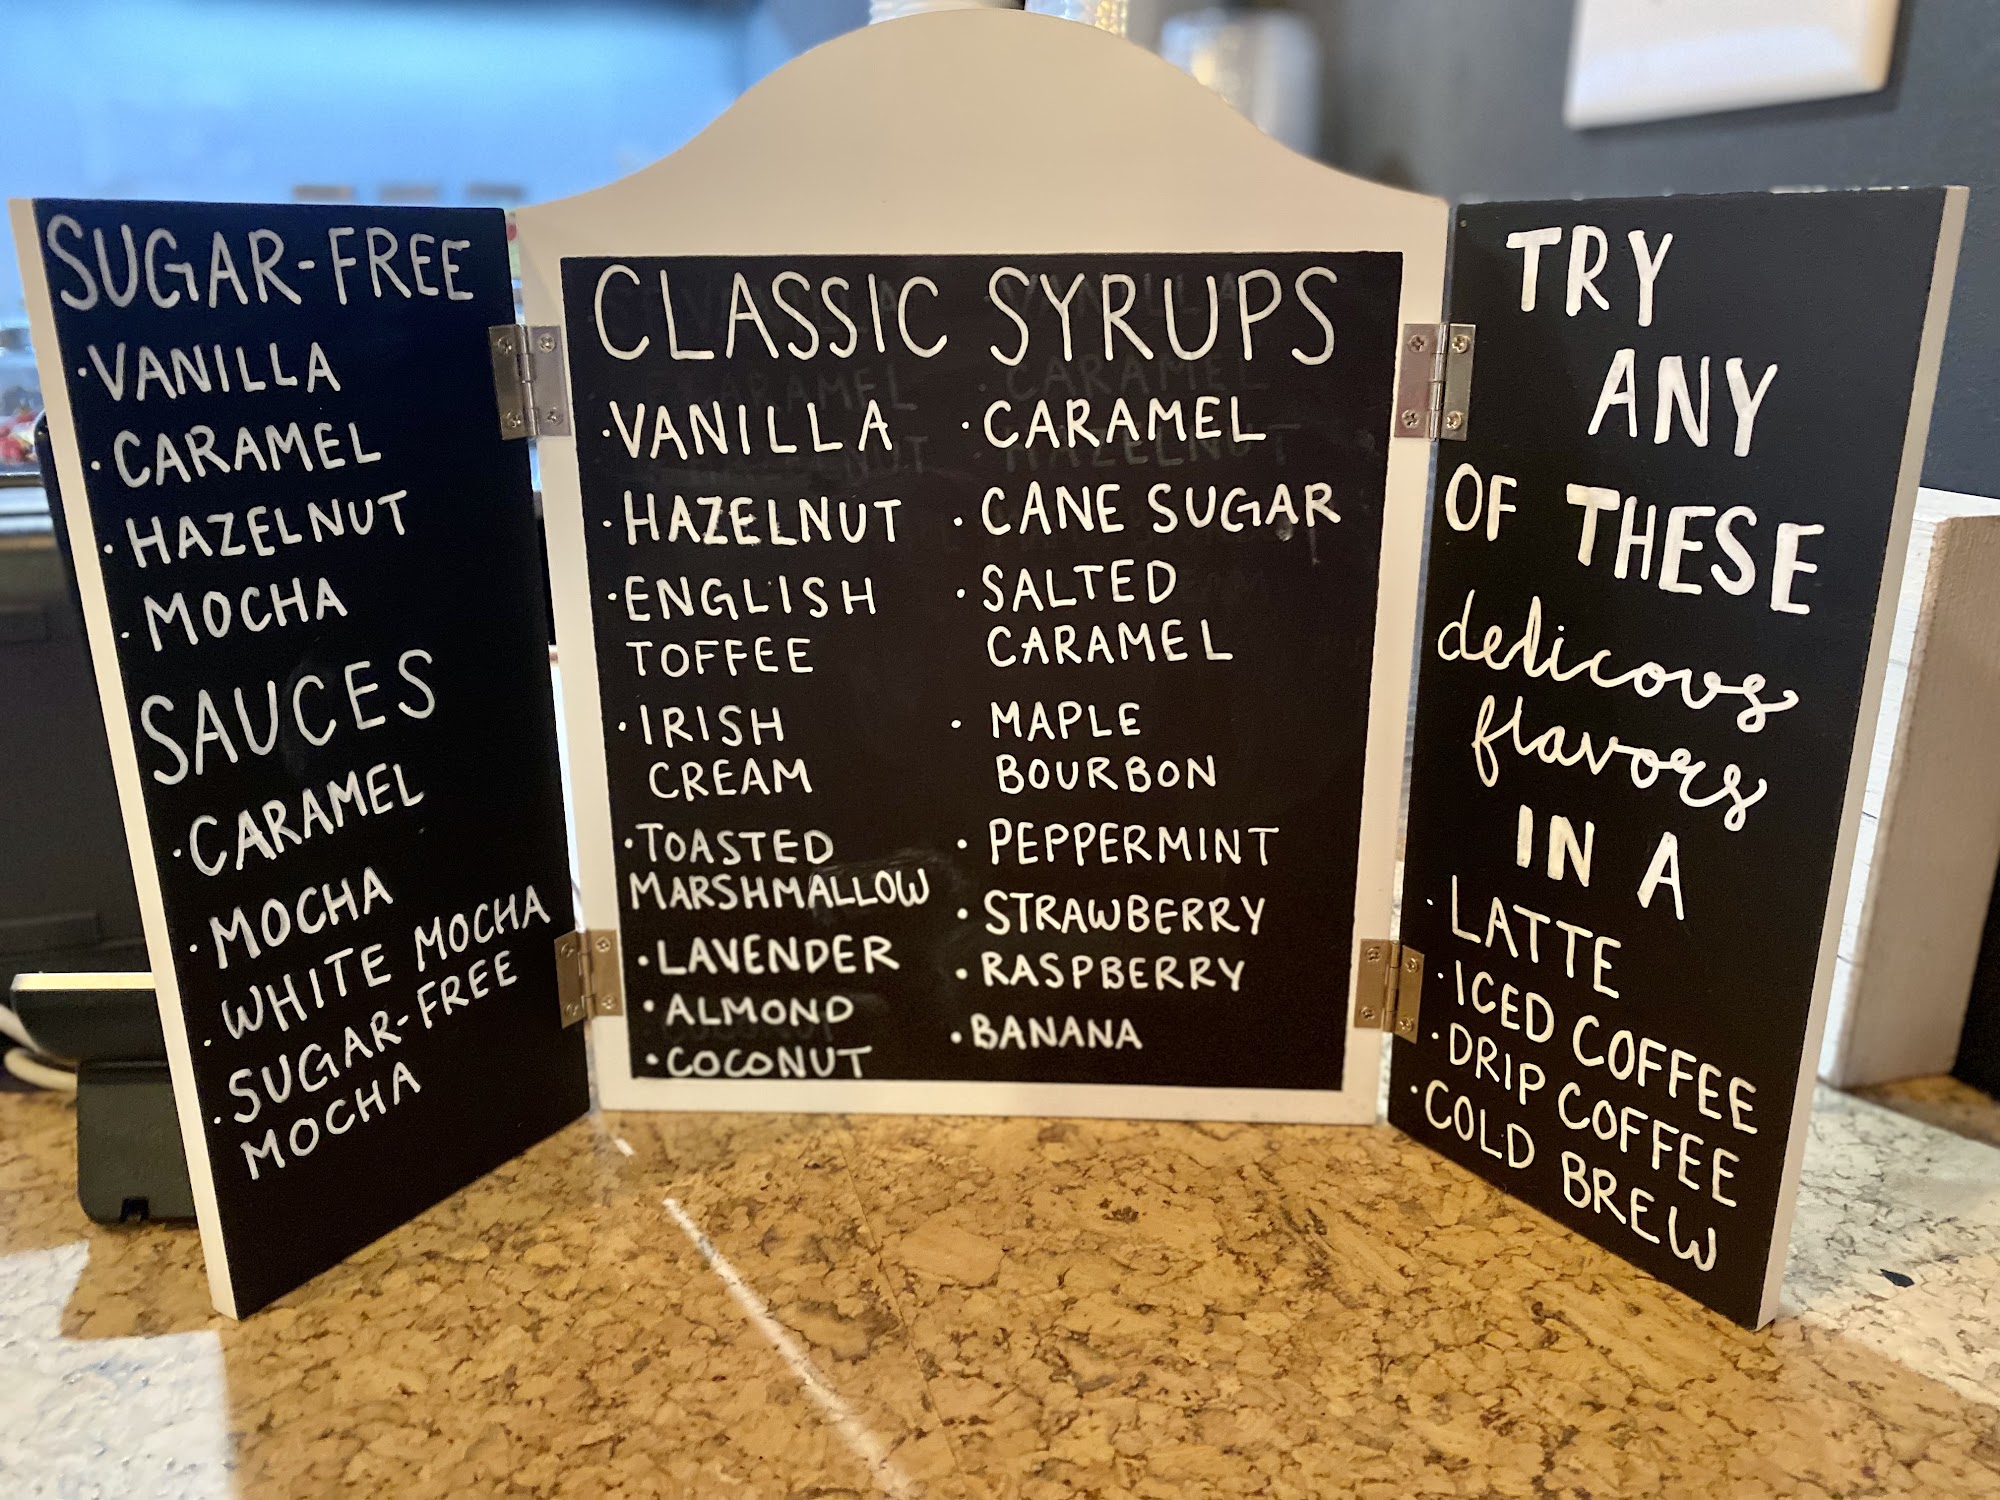 SUGAR-FREE
· VANILLA
· CARAMEL
· HAZELNUT
· MOCHA
SAUCES
· CARAMEL
· MOCHA
· WHITE MOCHA
· SUGAR-FREE
MOCHA
CLASSIC SYRUPS
· VANILLA
· HAZELNUT
· ENGLISH
TOFFEE
· IRISH
CREAM
· TOASTED
MARSHMALLOW
· LAVENDER
· ALMOND
· COCONUT
· CARAMEL
· CANE SUGAR
· SALTED
CARAMEL
· MAPLE
BOURBON
· PEPPERMINT
· STRAWBERRY
· RASPBERRY
· BANANA
TRY
ANY
OF THESE
delicous
flavors
IN A
· LATTE
· ICED COFFEE
· DRIP COFFEE
· COLD BREW